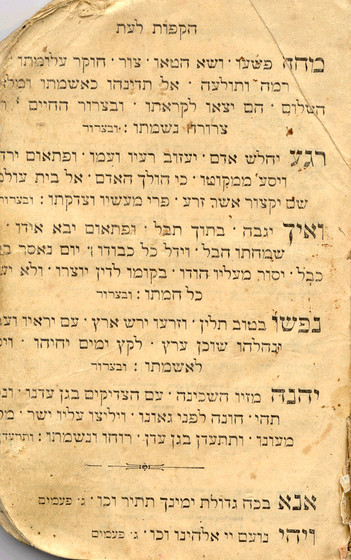 הקפות לעת
מחה פשעו · ושא חטאו · צור · חוקר עלומתו
רמה ותולעה · אל תדינהו כאשמתו
השלום · הם יצאו לקראתו · ובצרור החיים ·
צרורה נשמתו : ובצרור
רגע יחלש אדם · יעזוב רעיו ועמו · ופתאום
ויסע ממקומו · כי הולך האדם · אל בית
שם יקצור אשר זרע · פרי מעשיו וצדקתו : ובצרור
ואיך יגבה · בתוך תבל · ופתאום יבא אידו ·
שמחתו הבל · וידל כל כבודו · יום נאסר
כבל · יסור מעליו הודו · בקומו לדין יוצרו · ולא
כל חמתו : ובצרור
נפשו בטוב תלין · וזרעו ירש ארץ · עם יראיו
ינהלהו שוכן ערץ · לקץ ימים יחיהו ·
לאשמתו : ובצרור
יהנה מזיו השכינה · עם הצדיקים בגן עדנו ·
תהי · חונה לפני גאונו · ויליצו עליו ישר ·
מעונו · ותתעדן בגן עדן · רוחו ונשמתו :
אנא בכח גדולת ימינך תתיר וכו · ג׳ פעמים
ויהי נועם יי אלהינו וכו · ג׳ פעמים